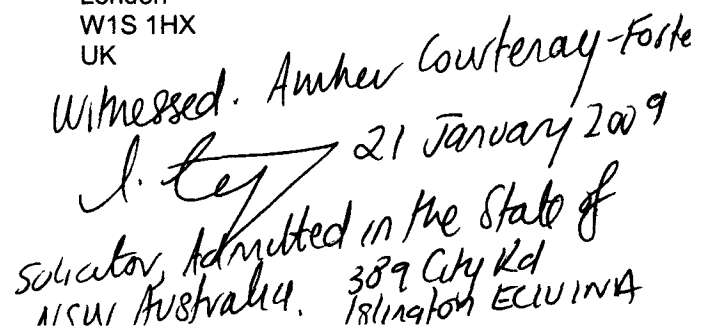 London
W1S 1HX
UK
Witnessed. Amber Courtenay-Foste
21 January 2009
Solicitor, Admitted in the State of
NSW Australia. 389 City Rd
Islington EC1V 1NA